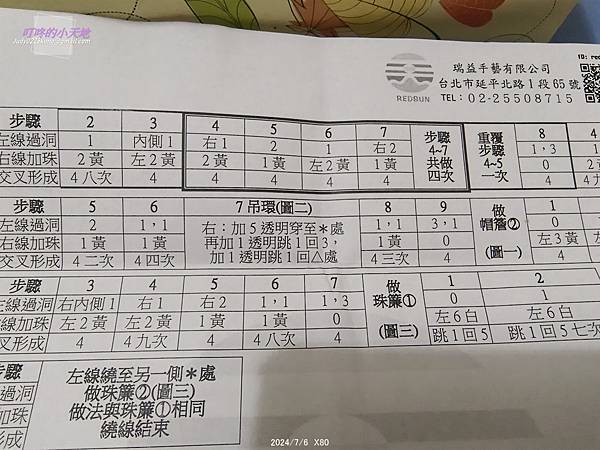 叮咚的小天地
瑞益手藝有限公司
台北市延平北路1段65號
REDSUN TEL：02-25508715
步驟 2 3 4 5 6 7 步驟 4-7 共做 四次 重覆 步驟 4~5 一次 8 4
左線過洞 1 內側1 右1 2 1 右2 1，3 1
右線加珠 2黃 左2黃 2黃 1黃 左2黃 1黃 0
交叉形成 4八次 4 4 4 4 4 4
步驟 5 6 7吊環(圖二) 8 9 做 帽簷② (圖一) 1
左線過洞 2 1，1 右：加5透明穿至＊處 再加1透明跳1回3， 加1透明跳1回△處 1，1 3，1 0
右線加珠 1黃 1黃 1黃 0 左3黃
交叉形成 4二次 4四次 4三次 4 4
步驟 3 4 5 6 7 做 珠簾① (圖三) 1 2
左線過洞 右內側1 右1 右2 1，1 1，3 0 1
右線加珠 左2黃 左2黃 1黃 1黃 0 左6白 左6白
交叉形成 4 4九次 4 4八次 4 跳1回5 跳1回5七次
步驟 左線繞至另一側＊處
過洞 做珠簾②(圖三)
加珠 做法與珠簾①相同
形成 繞線結束
2024/7/6 X80